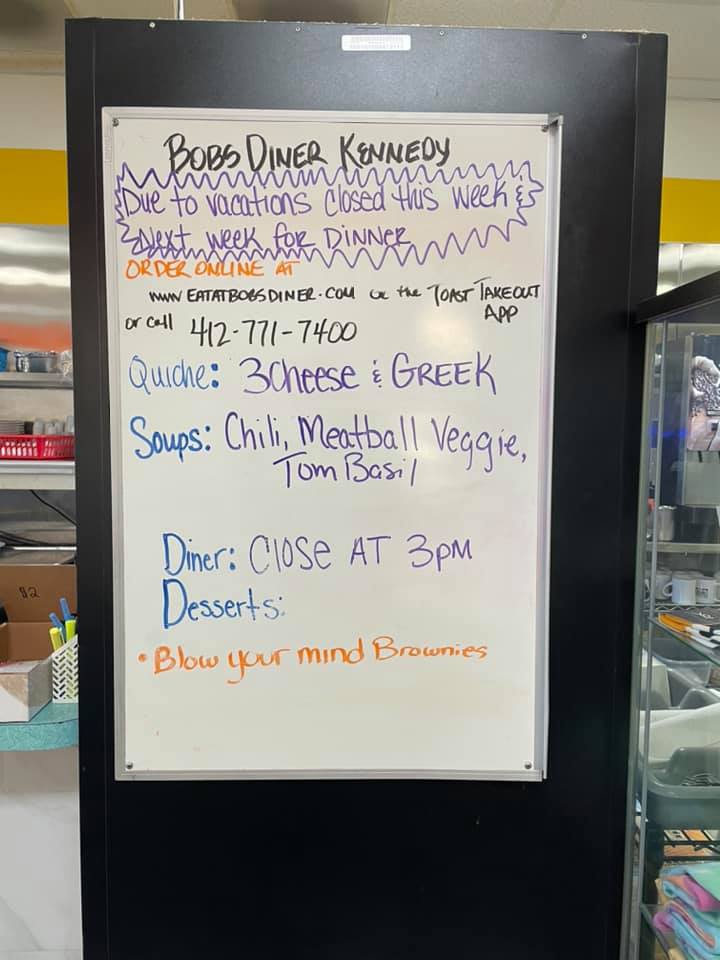 BOBS DINER KENNEDY
Due to vacations closed this week &
Next week for DINNER
ORDER ONLINE AT
www EATATBOBSDINER.COM or the TOAST TAKEOUT
APP
or call 412-771-7400
Quiche: 3Cheese & GREEK
Soups: Chili, Meatball Veggie,
Tom Basil
Diner: Close AT 3PM
Desserts:
• Blow your mind Brownies
$2